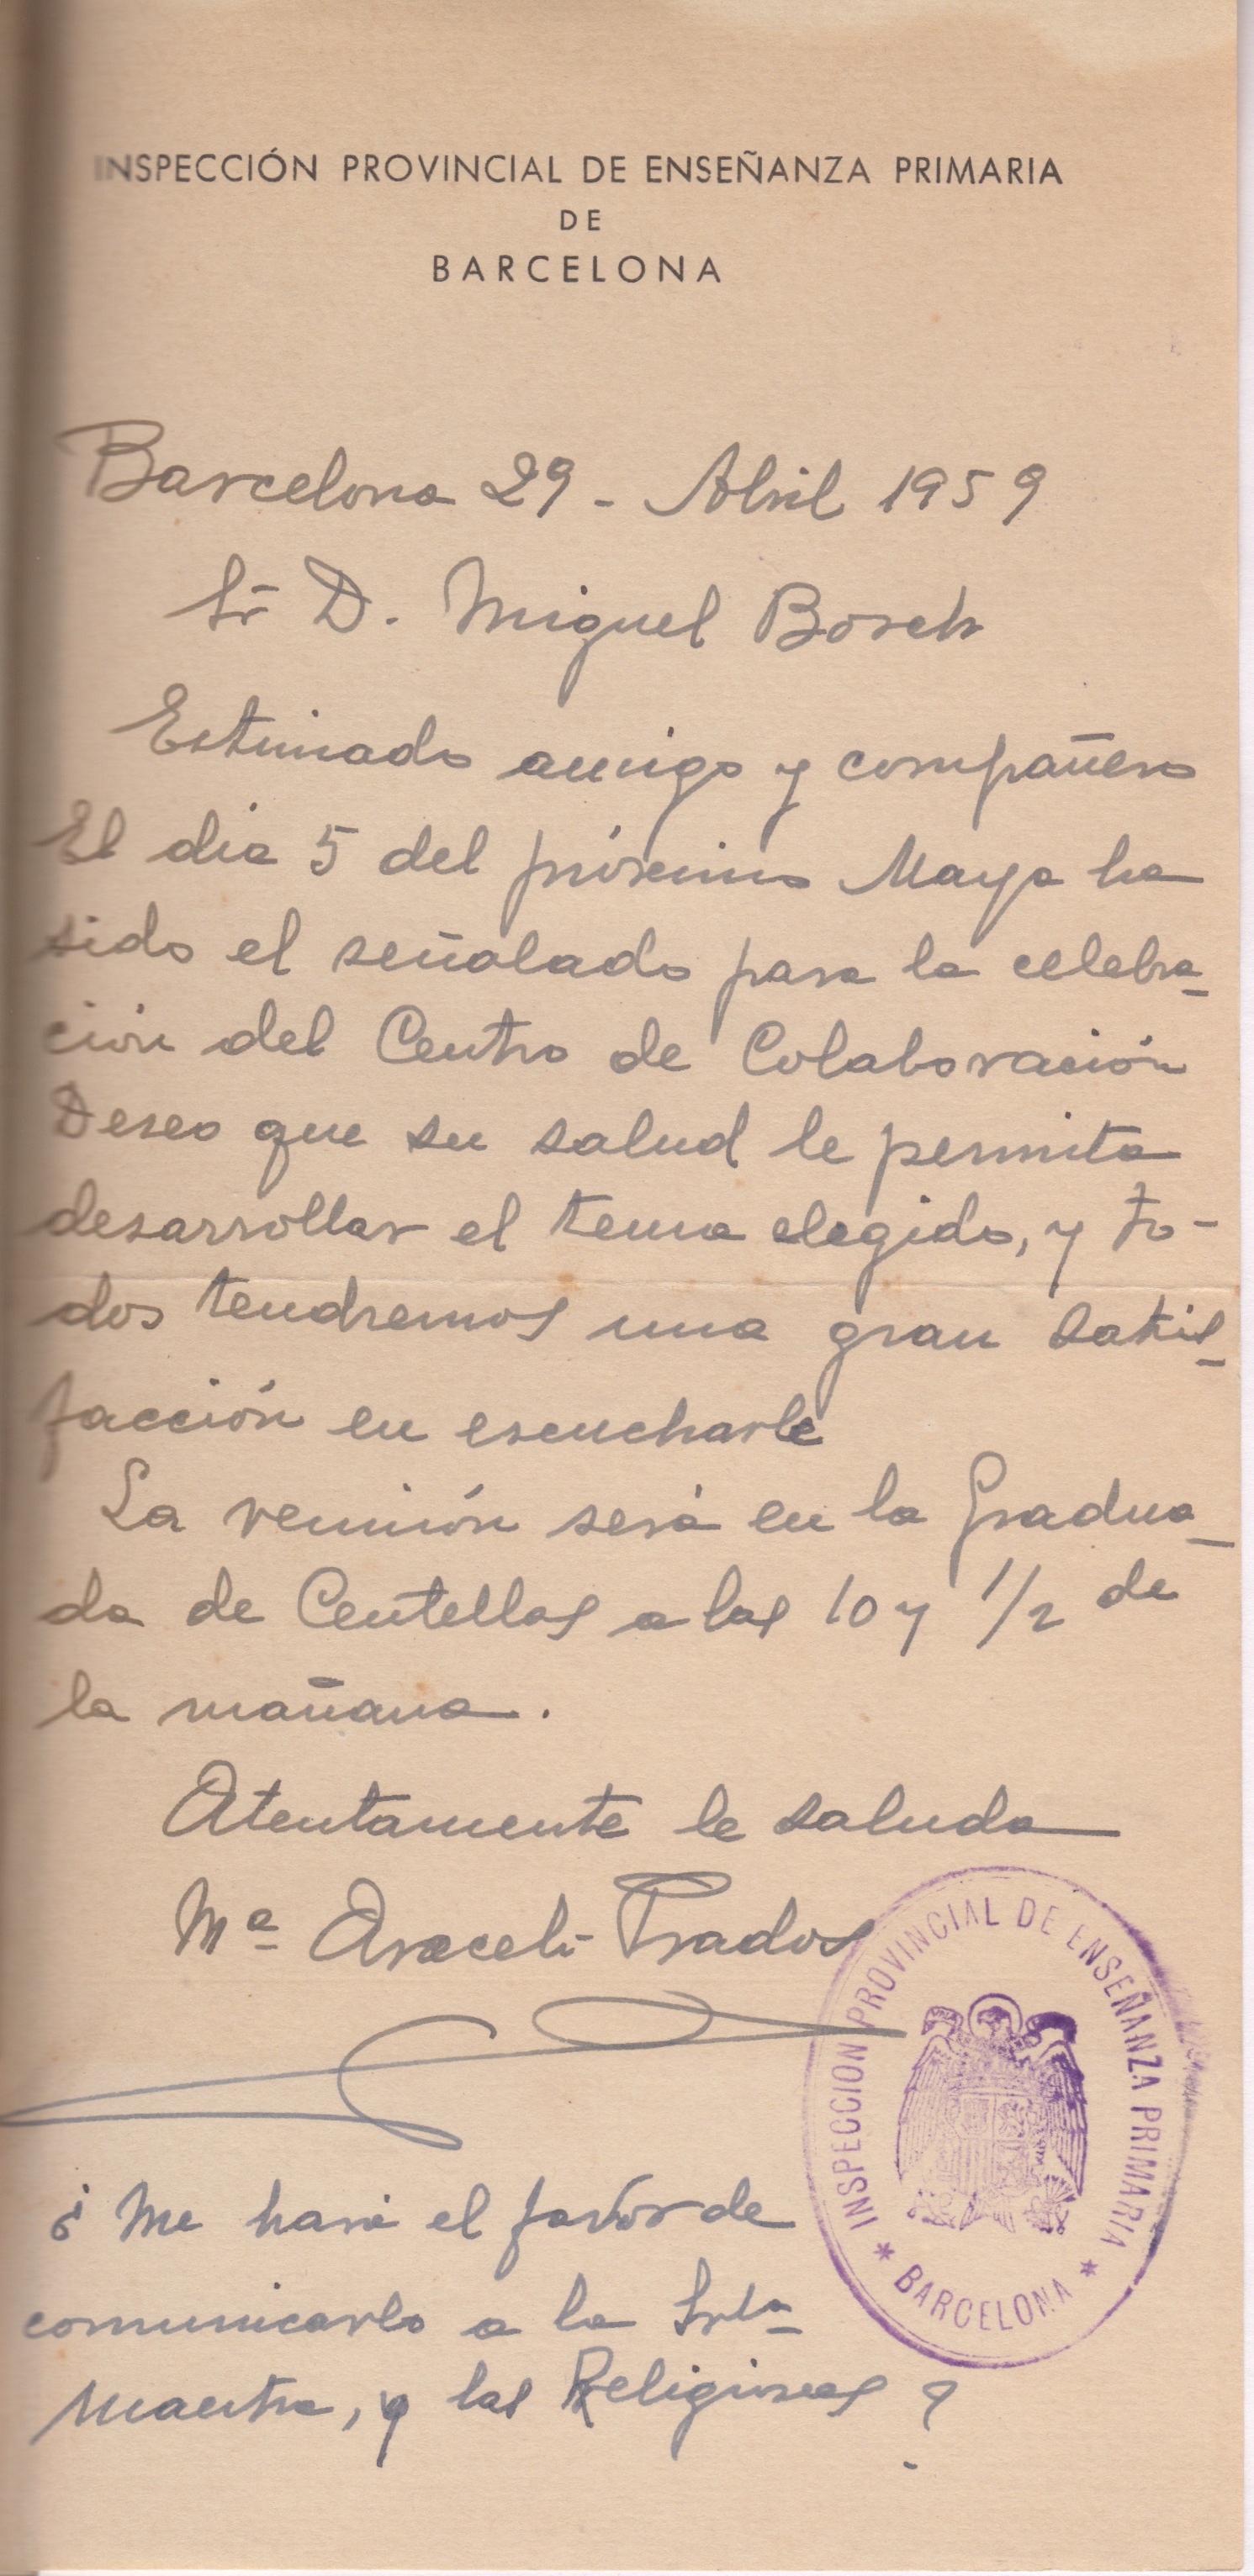 INSPECCIÓN PROVINCIAL DE ENSEÑANZA PRIMARIA
DE
BARCELONA
Barcelona 29 - Abril 1959
Sr D. Miguel Bosch
Estimado amigo y compañero
El dia 5 del próximo Mayo ha
sido el señalado para la celebra-
ción del Centro de Colaboración
Deseo que su salud le permita
desarrollar el tema elegido, y to-
dos tendremos una gran satis-
facción en escucharle
La reunión será en la Gradua-
da de Centellas a las 10 y 1/2 de
la mañana.
Atentamente le saluda
Mª Araceli Prados
INSPECCION PROVINCIAL DE ENSEÑANZA PRIMARIA
* BARCELONA *
¿Me hará el favor de
comunicarlo a la Srta
Maestra, y las Religiosas?